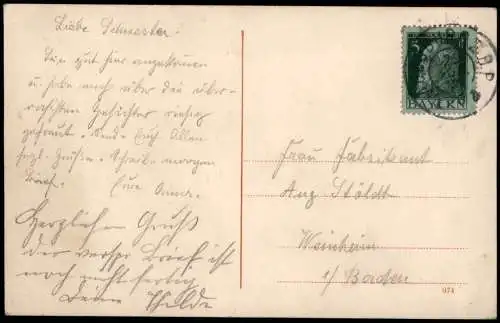 Liebe Schwester.
Bin gut hier angekommen
u. habe mich über die über-
raschten Gesichter riesig
gefreut. Sende Euch Allen
herzl. Grüße. Schreibe morgen
Brief. Eure Anna.
Herzlichen Gruß
der Brief ist
noch nicht fertig
Deine Thilde
BAYERN
Frau Fabrikant
Anz. Stöldt
Weinheim
i/ Baden
074